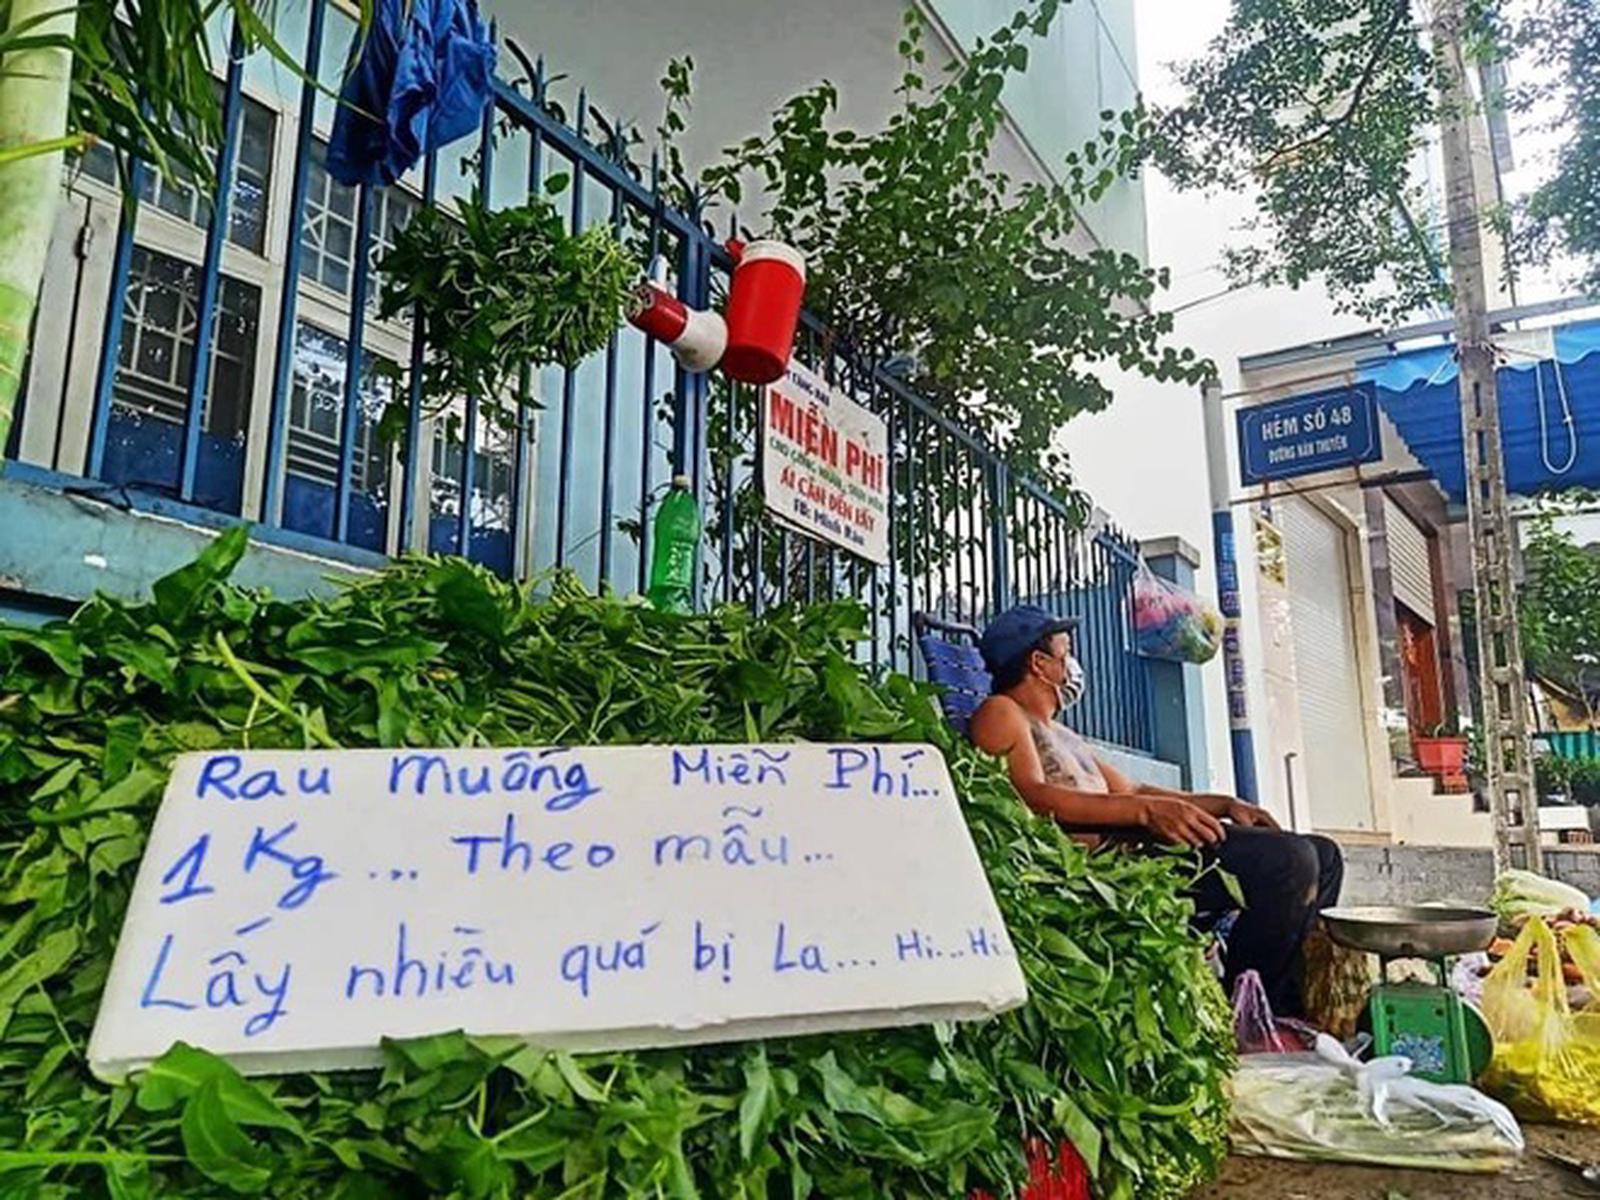 TẶNG RAU
MIỄN PHÍ
CHO CÔNG NHÂN, SINH VIÊN
AI CẦN ĐẾN LẤY
FB: Minh Râu
HẺM SỐ 48
ĐƯỜNG HÀN THUYÊN
Rau Muống Miễn Phí...
1 Kg... Theo mẫu...
Lấy nhiều quá bị La... Hi...Hi